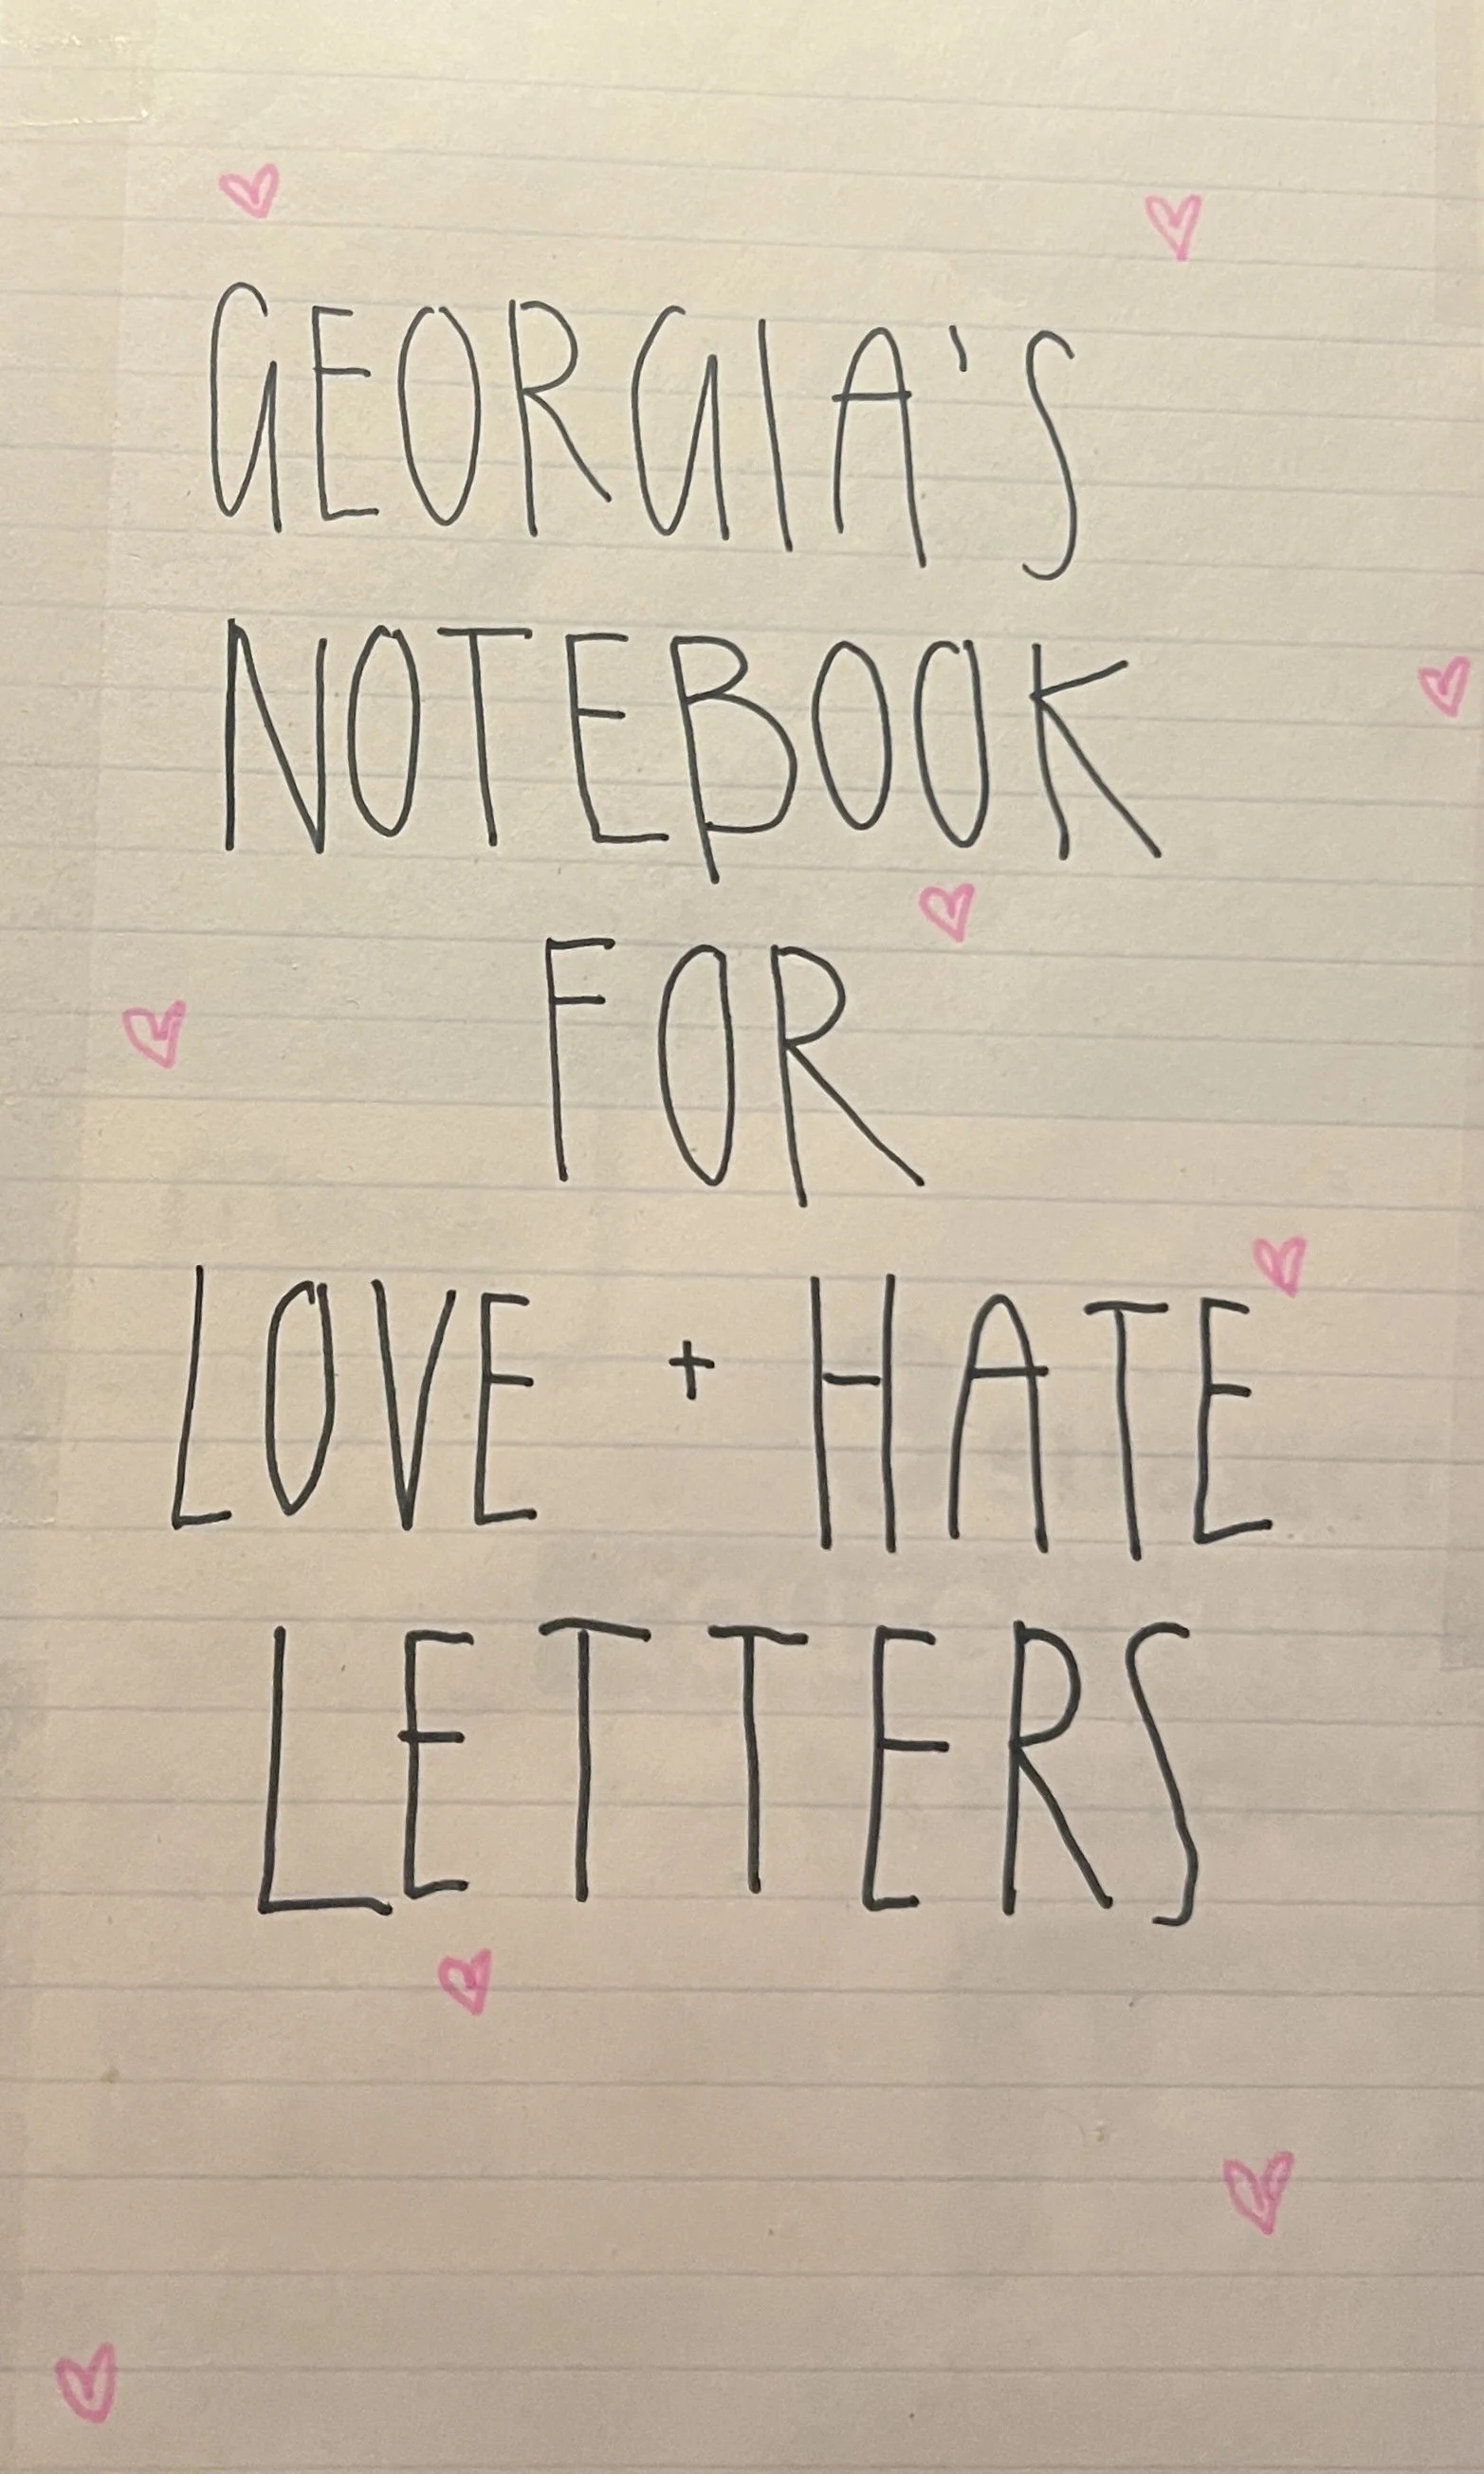 GEORGIA'S
NOTEBOOK
FOR
LOVE + HATE
LETTERS